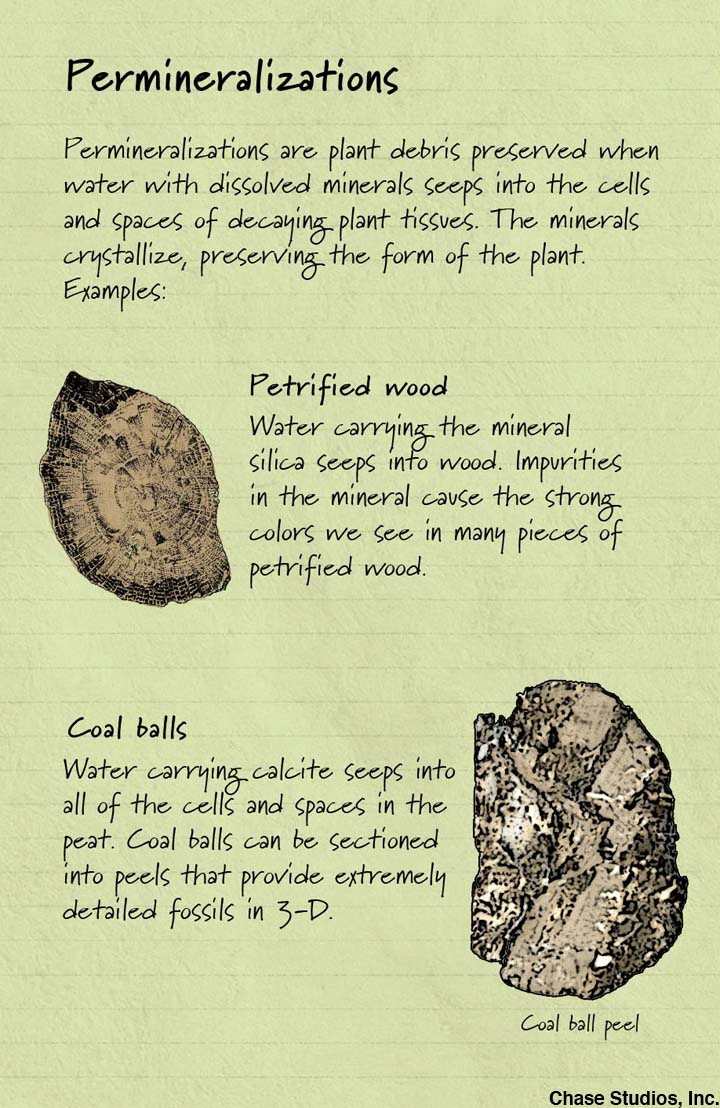 Permineralizations
Permineralizations are plant debris preserved when
water with dissolved minerals seeps into the cells
and spaces of decaying plant tissues. The minerals
crystallize, preserving the form of the plant.
Examples:
Petrified wood
Water carrying the mineral
silica seeps into wood. Impurities
in the mineral cause the strong
colors we see in many pieces of
petrified wood.
Coal balls
Water carrying calcite seeps into
all of the cells and spaces in the
peat. Coal balls can be sectioned
into peels that provide extremely
detailed fossils in 3-D.
Coal ball peel
Chase Studios, Inc.